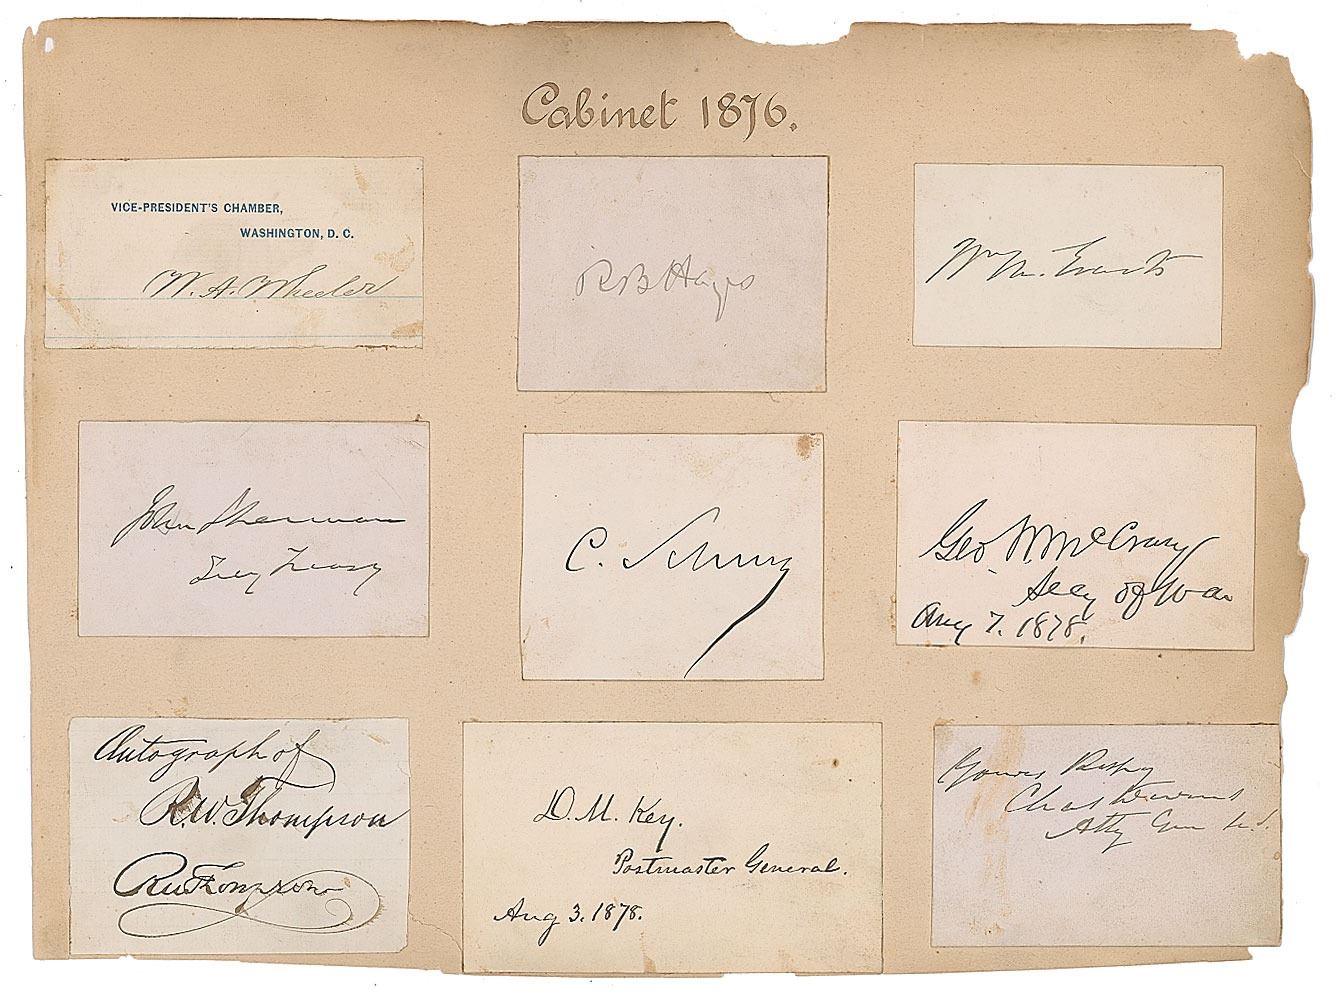 Cabinet 1876.
VICE-PRESIDENT'S CHAMBER,
WASHINGTON, D. C.
W. A. Wheeler
R B Hayes
Wm M. Evarts
John Sherman
Secy Treasy
C. Schurz
Geo. W. McCrary
Secy of War
Aug 7. 1878.
Autograph of
R. W. Thompson
R W Thompson
D. M. Key.
Postmaster General.
Aug 3. 1878.
Yours Respy
Chas Devens
Atty Gen U.S.